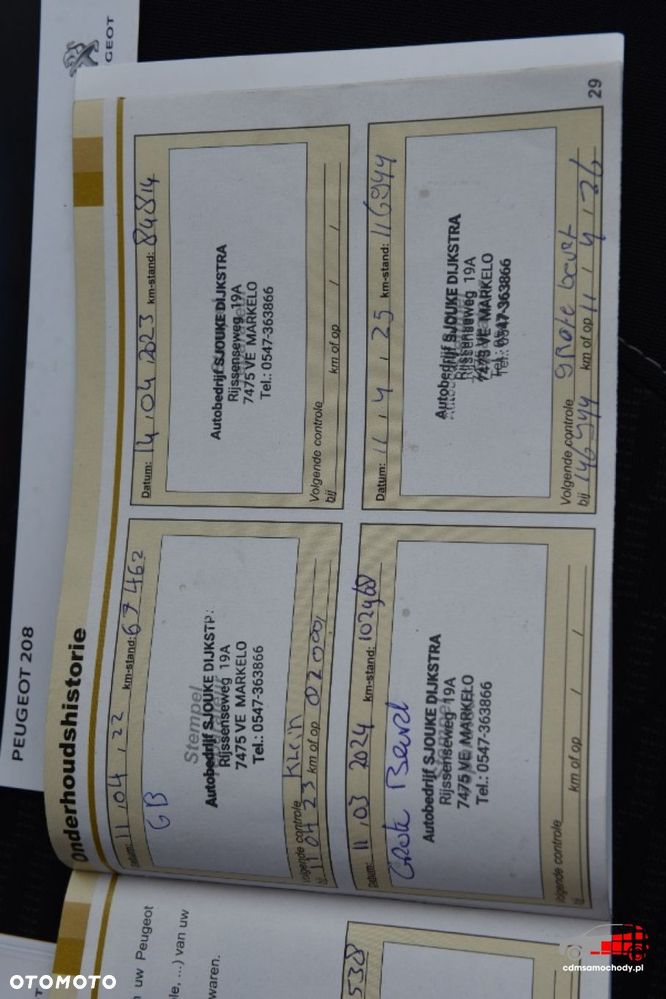 GEOT
PEUGEOT 208
Onderhoudshistorie
Datum: 11 / 04 / 22 km-stand: 67462
GB
Stempel
Autobedrijf SJOUKE DIJKSTR
Rijssenseweg 19A
7475 VE MARKELO
Tel.: 0547-363866
Volgende controle Klein
11 04 23 km of op
Datum: 14 / 04 / 2023 km-stand: 84814
Autobedrijf SJOUKE DIJKSTRA
Rijssenseweg 19A
7475 VE MARKELO
Tel.: 0547-363866
Volgende controle
bij km of op / /
Datum: 11 / 03 2024 km-stand: 102968
Grote Beurt
Autobedrijf SJOUKE DIJKSTRA
Rijssenseweg 19A
7475 VE MARKELO
Tel.: 0547-363866
Volgende controle
km of op / /
Datum: 11 / 4 / 25 km-stand: 116944
Autobedrijf SJOUKE DIJKSTRA
Rijssenseweg 19A
7475 VE MARKELO
Tel.: 0547-363866
Volgende controle grote beurt
bij 146944 km of op 11 / 4 / 26
29
uw Peugeot
le, ...) van uw
waren.
538
OTOMOTO
cdmsamochody.pl